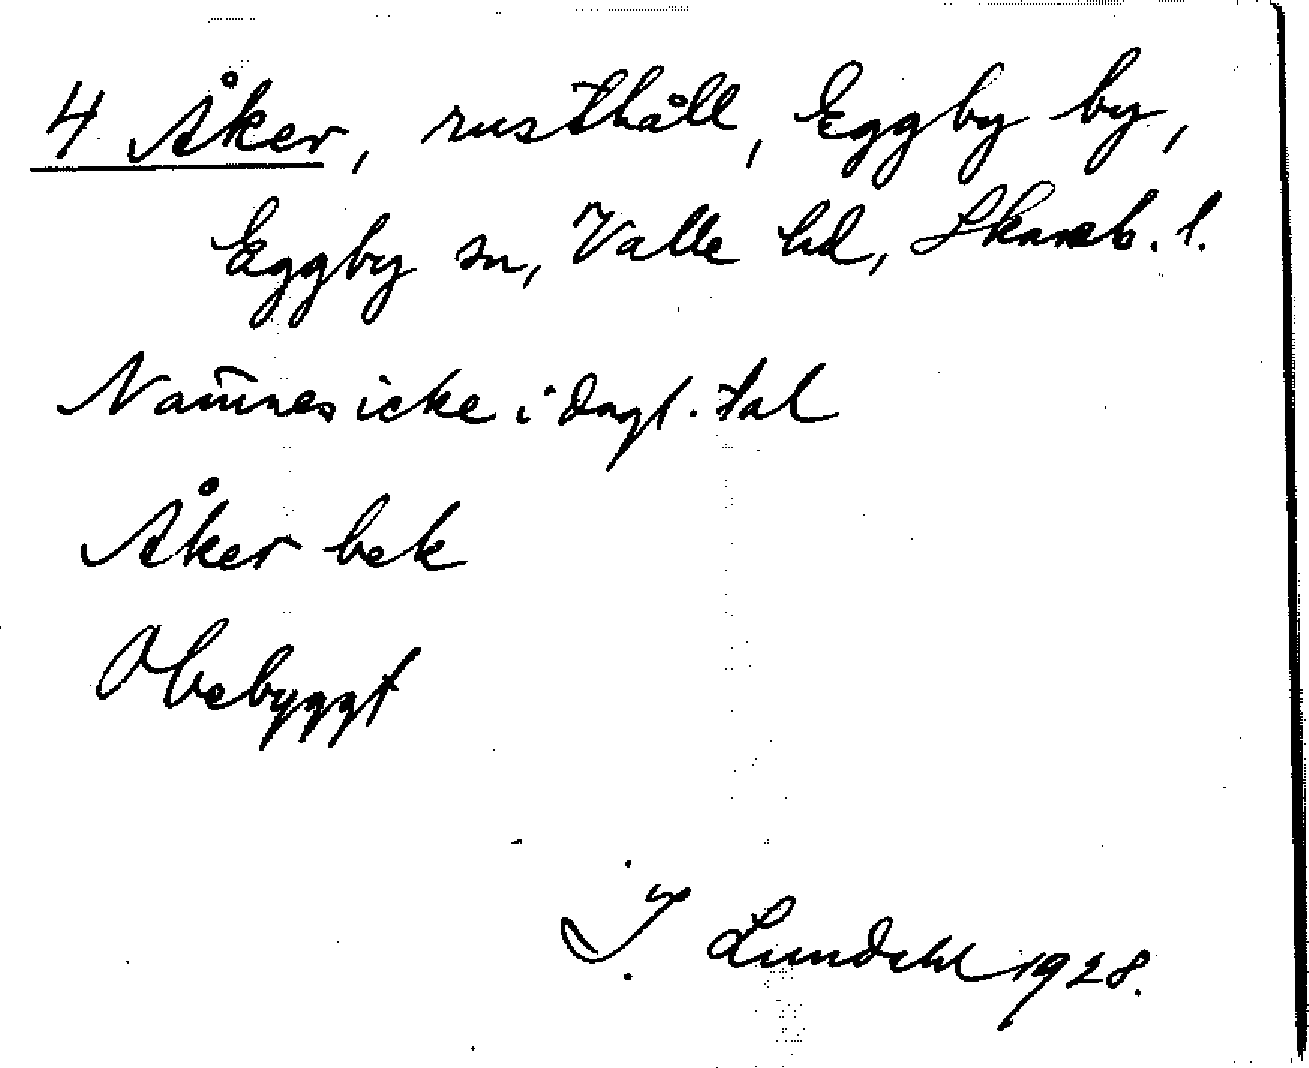 4 Åker, rusthåll, Eggby by,
Eggby sn, Valle hd, Skarab. l.
Nam̄nes icke i dagl. tal
Åker bek
Obebyggt
I. Lundahl 1928.